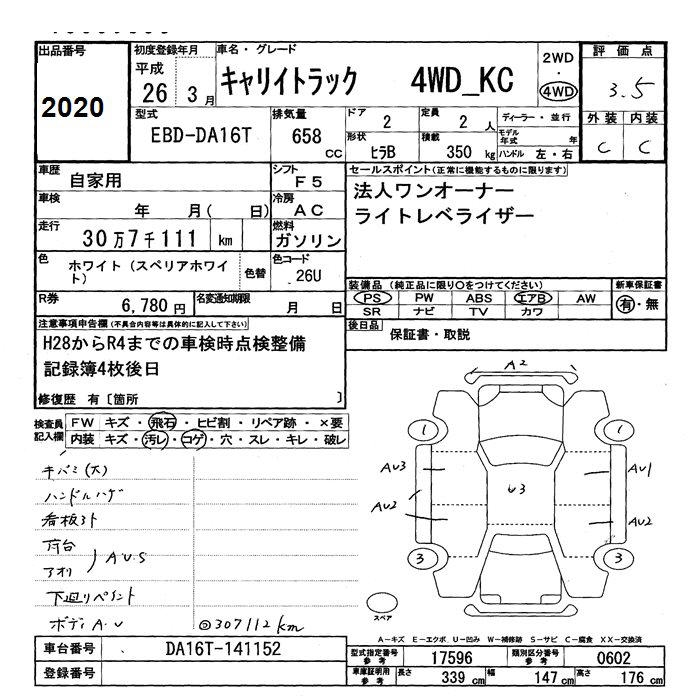 出品番号
2020
初度登録年月
平成
26 3月
車名・グレード
キャリイトラック 4WD_KC
2WD
・
4WD
評価点
3.5
外装 内装
C C
型式
EBD-DA16T
排気量
658 CC
ドア
2
定員
2 人
ディーラー・並行
モデル年式 年
形状
ヒラB
積載
350 kg
ハンドル 左・右
車歴
自家用
シフト
F5
車検
年 月( 日)
冷房
AC
走行
30万7千111 km
燃料
ガソリン
色
ホワイト(スペリアホワイト)
色替
色コード
26U
R券
6,780 円
名変通知期限
月 日
セールスポイント(正常に機能するものに限ります)
法人ワンオーナー
ライトレベライザー
装備品(純正品に限り○をつけてください)
PS PW ABS エアB AW
SR ナビ TV カワ
新車保証書
有・無
後日品
保証書・取説
注意事項申告欄(不具合内容等は具体的に記入して下さい)
H28からR4までの車検時点検整備
記録簿4枚後日
修復歴 有〔箇所 〕
検査員記入欄
FW キズ・飛石・ヒビ割・リペア跡・×要
内装 キズ・汚レ・コゲ・穴・スレ・キレ・破レ
キバミ(大)
ハンドルハゲ
看板31
荷台
アオリ
AU.S
下廻りペイント
ボディA.U
◎307112km
A2
1 1
AU3 AU1
U3
AU2 AU2
3 3
スペア
A-キズ E-エクボ U-凹み W-補修跡 S-サビ C-腐食 XX-交換済
車台番号
DA16T-141152
登録番号
型式指定番号 参考
17596
類別区分番号 参考
0602
車庫証明用 参考
長さ 339 cm
幅 147 cm
高さ 176 cm